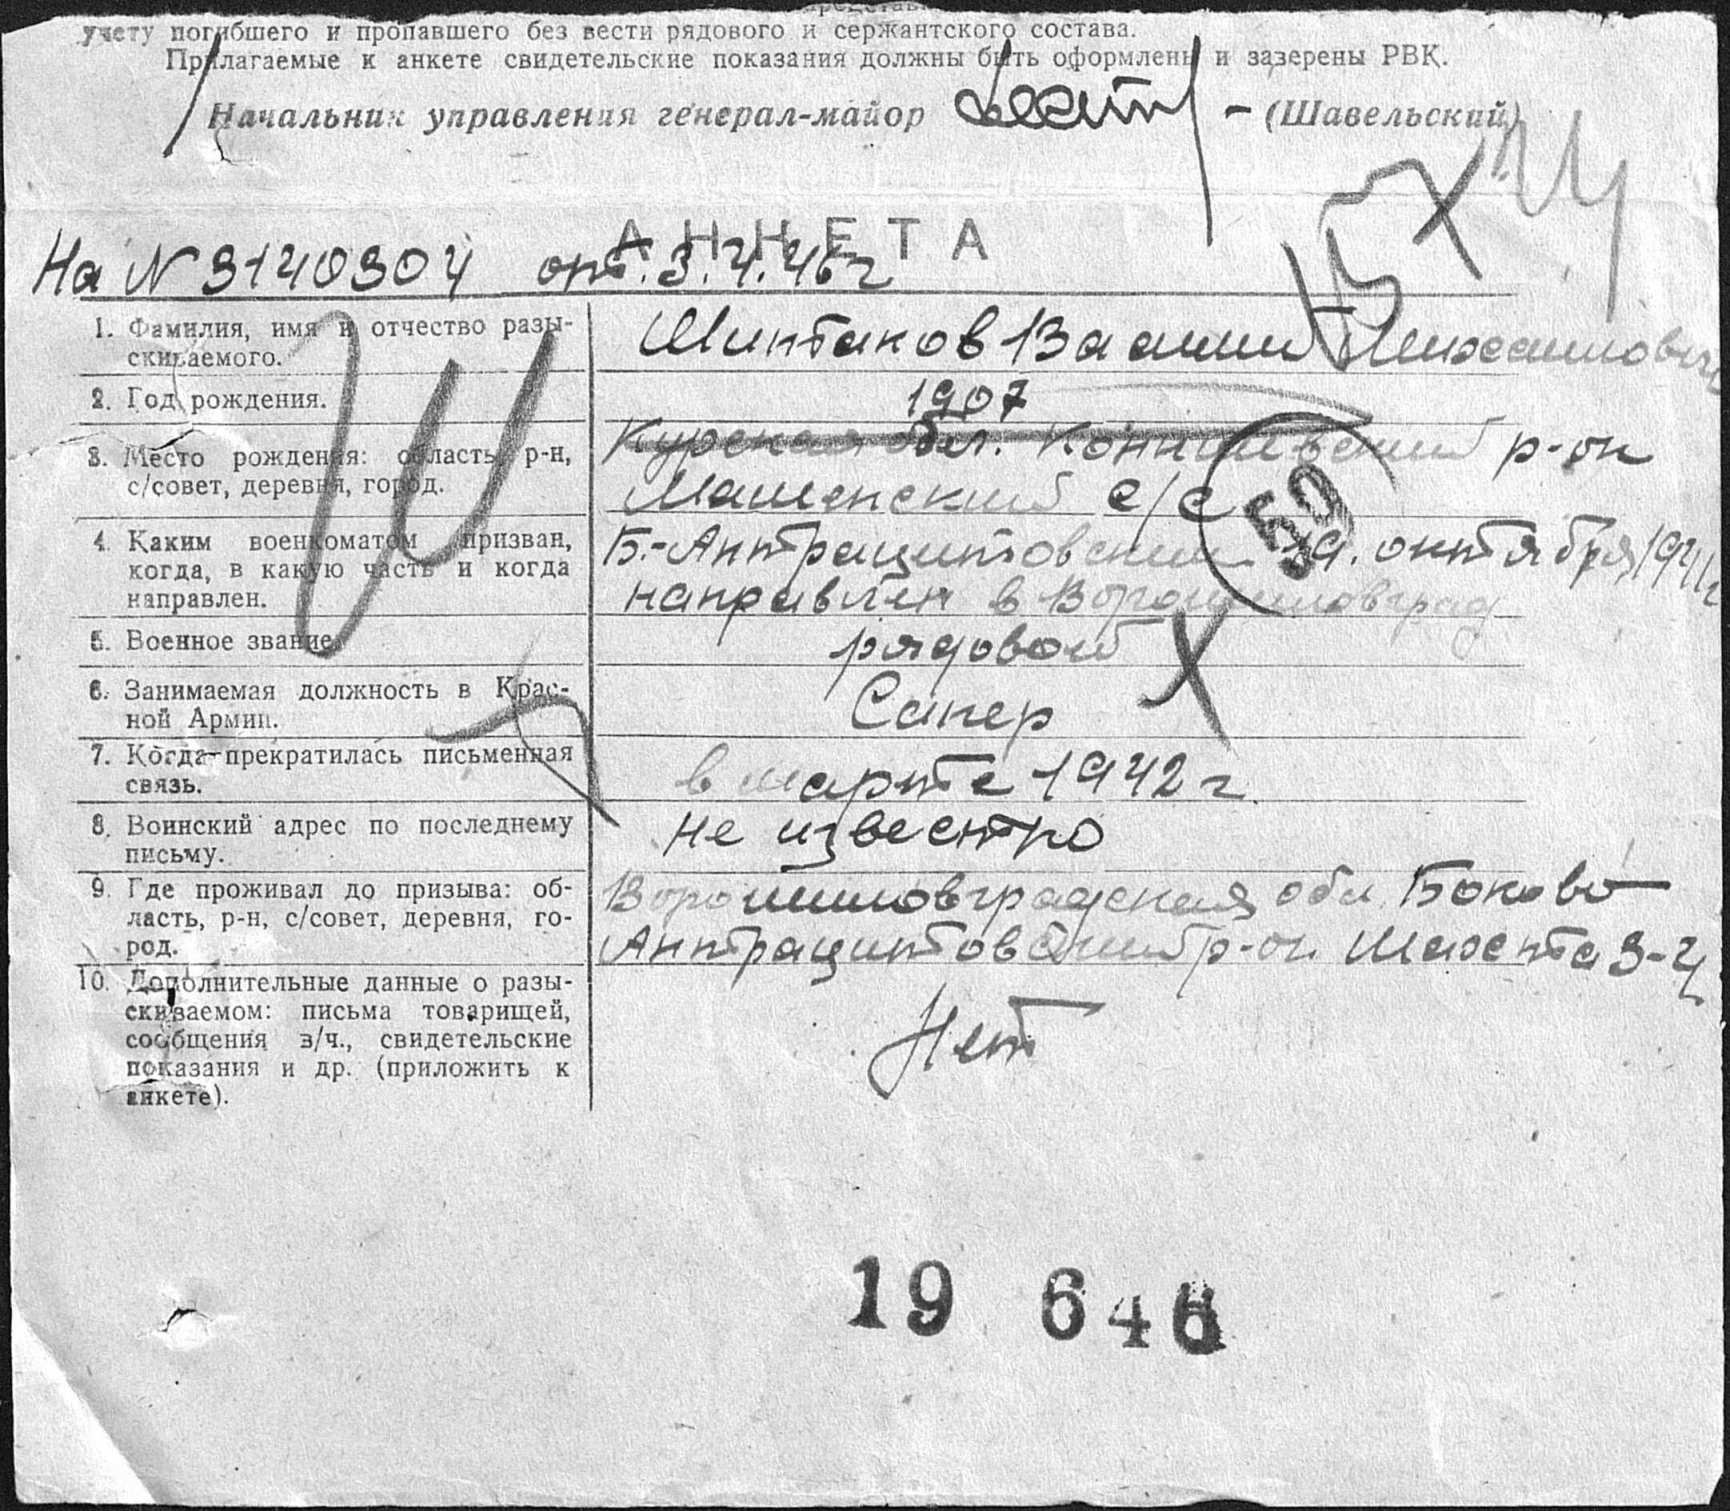 учету погибшего и пропавшего без вести рядового и сержантского состава.
Прилагаемые к анкете свидетельские показания должны быть оформлены и заверены РВК.
Начальник управления генерал-майор – (Шавельский)
АНКЕТА
На № 3140304 от. 3.4.46 г
1. Фамилия, имя и отчество разы-
скиваемого.
Шинтаков Василий Михайлович
2. Год рождения.
1907
3. Место рождения: область, р-н,
с/совет, деревня, город.
Курская обл. Конышевский р-он
Машенский с/с
59
4. Каким военкоматом призван,
когда, в какую часть и когда
направлен.
Б.-Антрацитовский 19. октября 1941 г
направлен в Ворошиловград
5. Военное звание
рядовой
6. Занимаемая должность в Крас-
ной Армии.
Сапер
7. Когда прекратилась письменная
связь.
в марте 1942 г.
8. Воинский адрес по последнему
письму.
не известно
9. Где проживал до призыва: об-
ласть, р-н, с/совет, деревня, го-
род.
Ворошиловградская обл. Боково-
Антрацитовский р-он Шахта 3-4
10. Дополнительные данные о разы-
скиваемом: письма товарищей,
сообщения в/ч., свидетельские
показания и др. (приложить к
анкете).
Нет
19 646